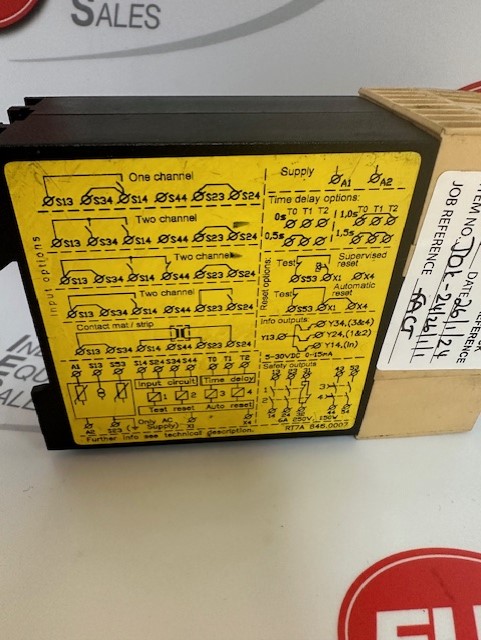 SALES
One channel
S13 S34 S14 S44 S23 S24
Two channel
S13 S34 S14 S44 S23 S24
Two channel
S13 S34 S14 S44 S23 S24
Two channel
S13 S34 S14 S44 S23 S24
Contact mat / strip
S13 S34 S14 S44 S23 S24
Input options
A1 S13 S53 S14 S24 S34 S44 T0 T1 T2
Input circuit Time delay
1 2 3 4
Test reset Auto reset
A2 S23 (+ Only AC Supply) X1 X4
Further info see technical description.
Supply A1 A2
Time delay options:
T0 T1 T2 T0 T1 T2
0s 1,0s
0,5s 1,5s
Reset options:
Test Supervised reset
S53 X1 X4
Test Automatic reset
S53 X1 X4
Info outputs
Y13 Y34,(3&4)
Y24,(1&2)
Y14,(In)
5-30VDC 0-15mA
Safety outputs
1
2
3
4
6A 250V
RT7A 846.0007
ITEM NO.
DATE 26/11/24
JOB REFERENCE
REFERENCE